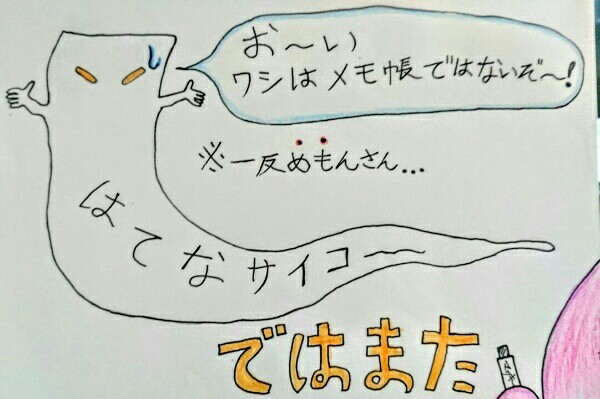 お〜い
ワシはメモ帳ではないぞ〜!
※一反めもんさん…
はてなサイコー〜
ではまた